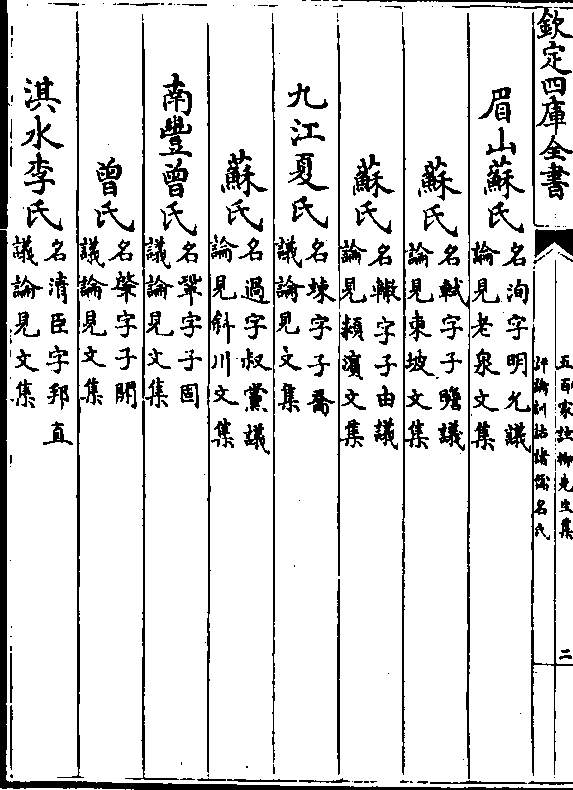 欽定四庫全書
五百家註柳先生集
評論訓詁諸儒名氏
二
眉山蘇氏
名洵字明允議
論見老泉文集
蘇氏
名軾字子瞻議
論見東坡文集
蘇氏
名轍字子由議
論見潁濱文集
九江夏氏
名竦字子喬
議論見文集
蘇氏
名過字叔黨議
論見斜川文集
南豐曾氏
名鞏字子固
議論見文集
曾氏
名肇字子開
議論見文集
淇水李氏
名清臣字邦直
議論見文集